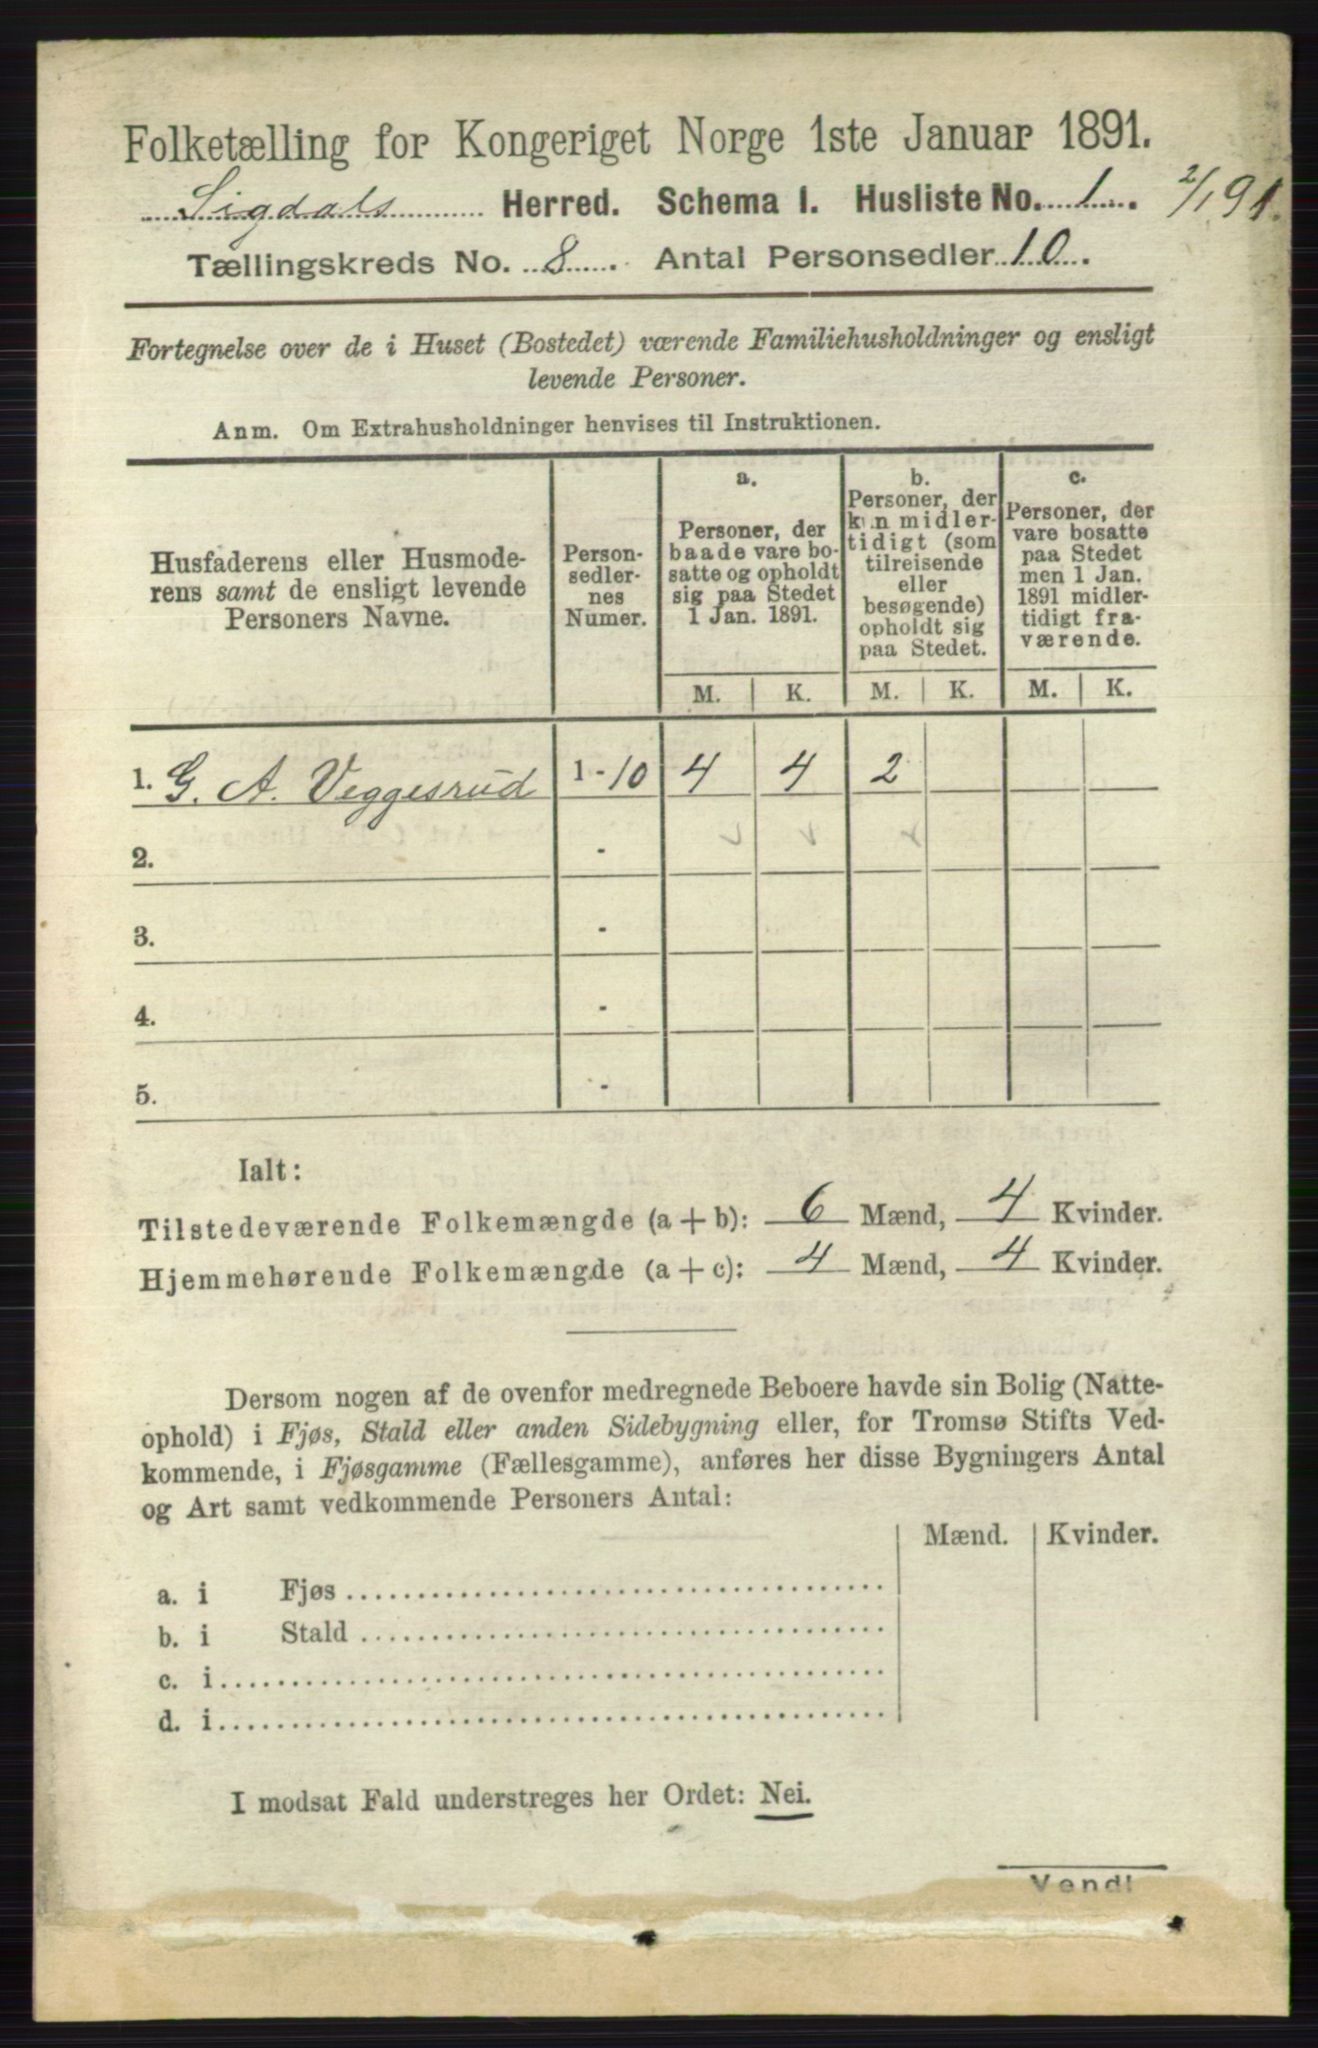 Folketælling for Kongeriget Norge 1ste Januar 1891.
Sigdals Herred. Schema I. Husliste No. 1. 2/1 91.
Tællingskreds No. 8. Antal Personsedler 10.
Fortegnelse over de i Huset (Bostedet) værende Familiehusholdninger og ensligt
levende Personer.
Anm. Om Extrahusholdninger henvises til Instruktionen.
Husfaderens eller Husmode-
rens samt de ensligt levende
Personers Navne.
Person-
sedler-
nes
Numer.
a.
Personer, der
baade vare bo-
satte og opholdt
sig paa Stedet
1 Jan. 1891.
b.
Personer, der
kun midler-
tidigt (som
tilreisende
eller
besøgende)
opholdt sig
paa Stedet.
c.
Personer, der
vare bosatte
paa Stedet
men 1 Jan.
1891 midler-
tidigt fra-
værende.
M. K. M. K. M. K.
1. G. A. Veggesrud 1-10 4 4 2
2. -
3. -
4. -
5. -
Ialt:
Tilstedeværende Folkemængde (a + b): 6 Mænd, 4 Kvinder.
Hjemmehørende Folkemængde (a + c): 4 Mænd, 4 Kvinder.
Dersom nogen af de ovenfor medregnede Beboere havde sin Bolig (Natte-
ophold) i Fjøs, Stald eller anden Sidebygning eller, for Tromsø Stifts Ved-
kommende, i Fjøsgamme (Fællesgamme), anføres her disse Bygningers Antal
og Art samt vedkommende Personers Antal:
Mænd. Kvinder.
a. i Fjøs
b. i Stald
c. i
d. i
I modsat Fald understreges her Ordet: Nei.
Vend!